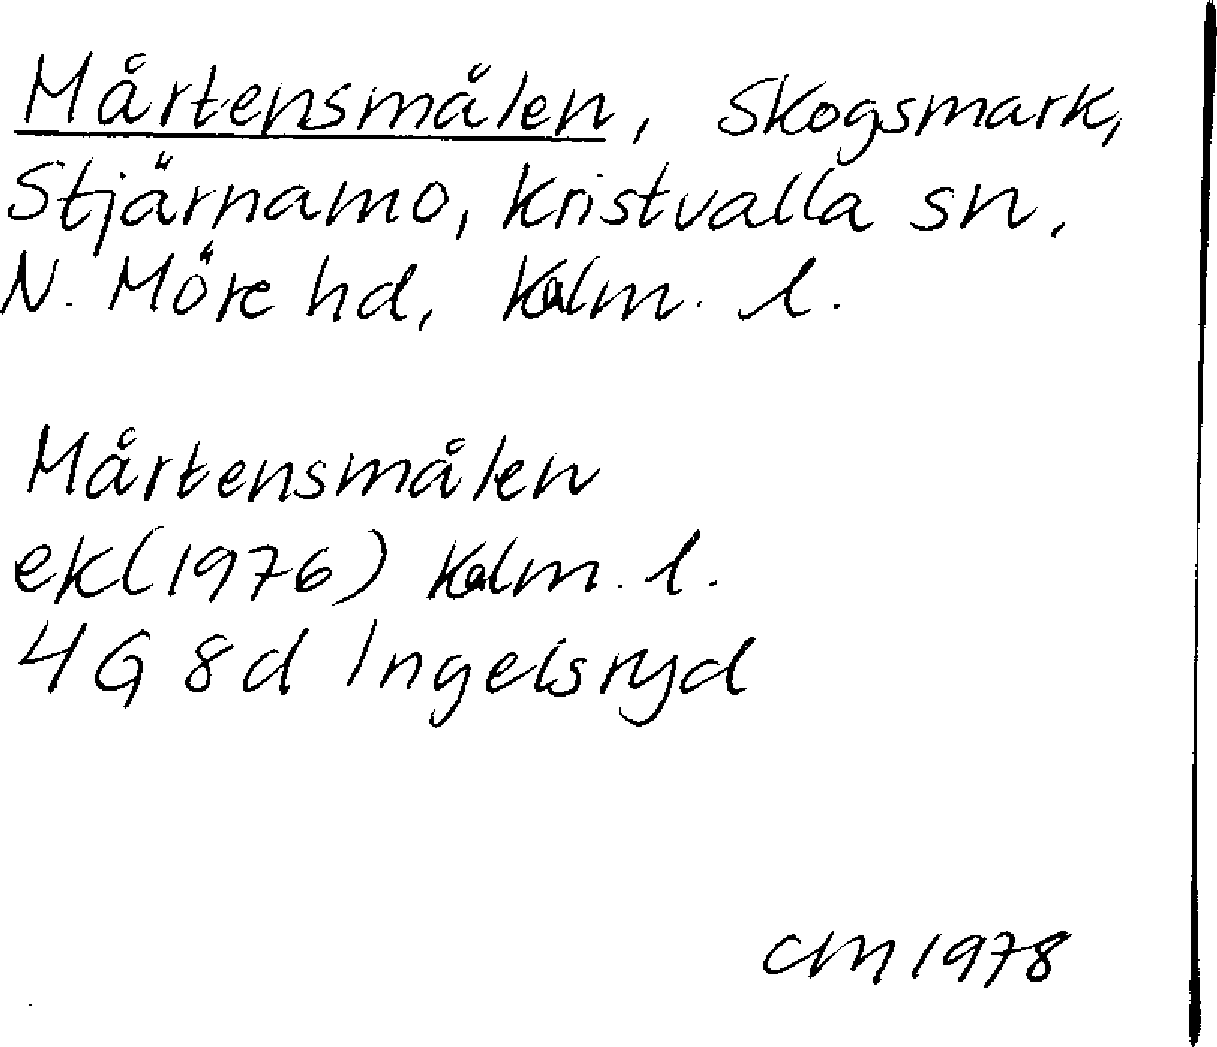 Mårtensmålen, Skogsmark,
Stjärnamo, Kristvalla sn,
N. Möre hd, Kalm. l.
Mårtensmålen
ek(1976) Kalm. l.
4G 8d Ingelsryd
CM 1978